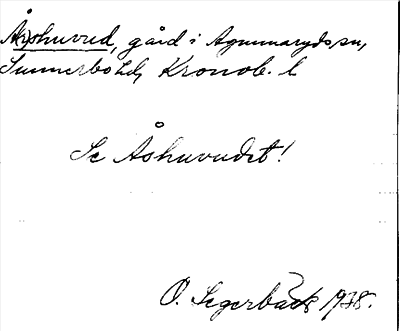 Åshuvud, gård i Agunnaryds sn,
Sunnerbo hd, Kronob. l
Se Åshuvudet!
O. Segerbäck 1938.